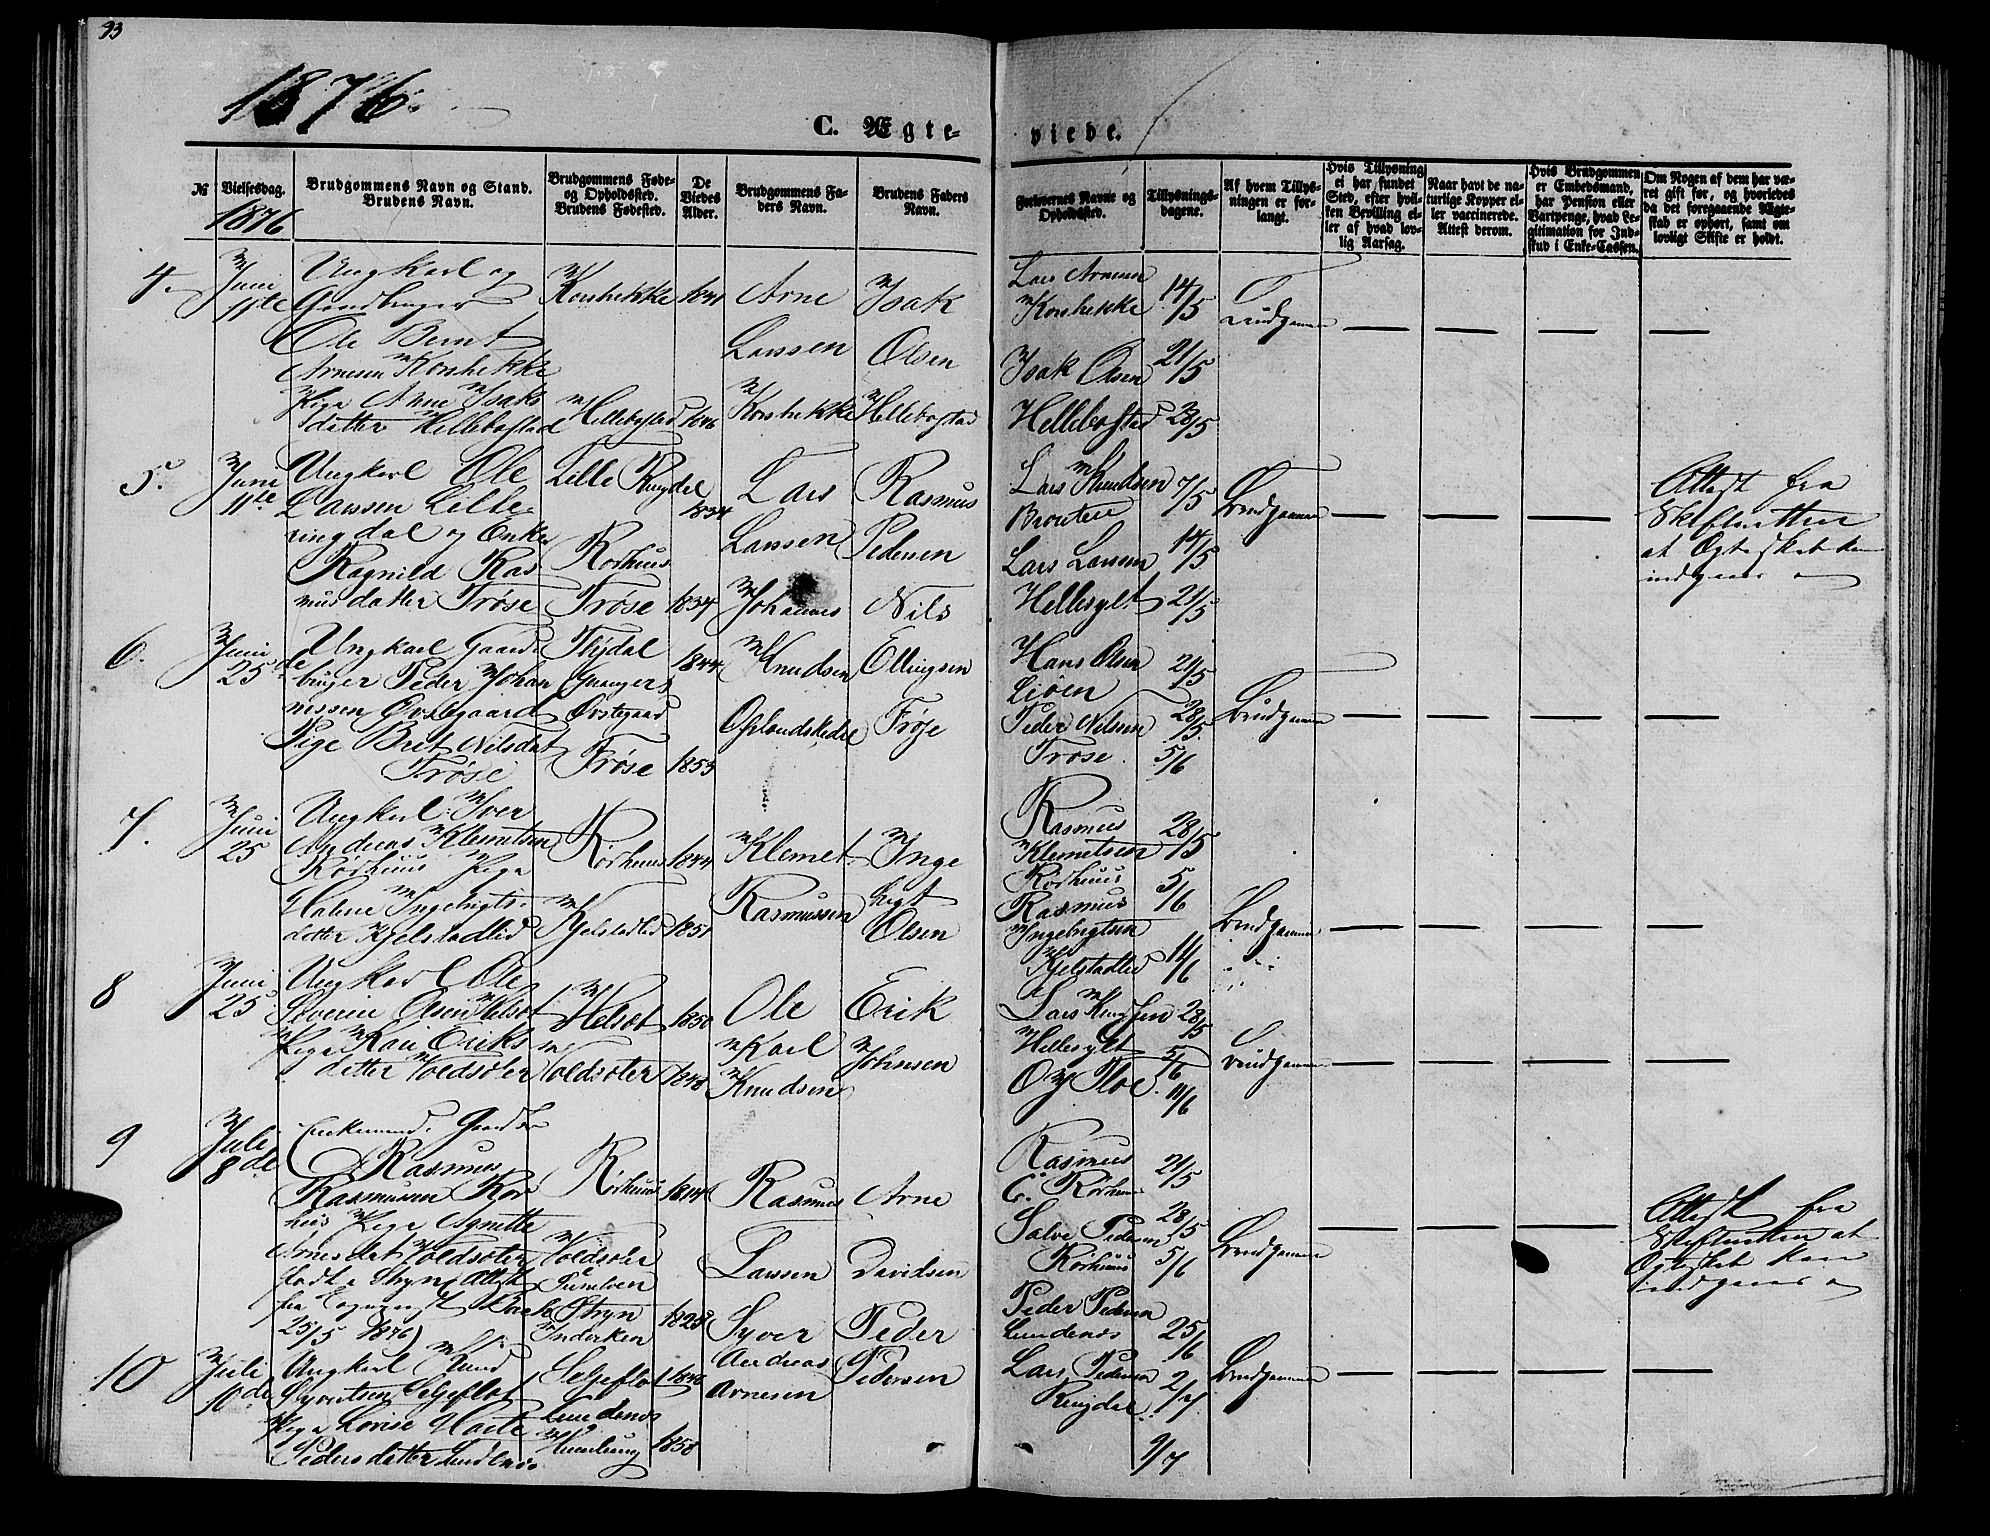 93
1876.
C. Ægte-
viede.
№
Vielsesdag.
1876
Brudgommens Navn og Stand.
Brudens Navn.
Brudgommens Føde-
og Opholdssted.
Brudens Fødested.
De
Viedes
Alder.
Brudgommens Fa-
ders Navn.
Brudens Faders
Navn.
Forlovernes Navne og
Opholdssted.
Tillysnings-
dagene.
Af hvem Tillys-
ningen er for-
langt.
Hvis Tillysning
ei har fundet
Sted, efter hvil-
ken Bevilling el-
ler af hvad lov-
lig Aarsag.
Naar havt de na-
turlige Kopper el-
ler vaccinerede.
Attest derom.
Hvis Brudgommen
er Embedsmand,
har Pension eller
Vartpenge, hvad Le-
gitimation for Ind-
skud i Enke-Cassen.
Om Nogen af dem har væ-
ret gift før, og hvorledes
da det foregaaende Ægte-
skab er ophørt, samt om
lovligt Skifte er holdt.
4.
Juni
11te
Ungkarl og
Gaardbruger
Ole Bernt
Arnesen Korshekke
Pige Anne Isaks
datter Hellebostad
Korshekke
Hellebostad
1841
1846
Arne
Larssen
Korshekke
Isak
Olsen
Hellebostad
Lars Arnesen
Korshekke
Isak Olsen
Hellebostad
14/5
21/5
28/5
Brudgommen
5.
Juni
11te
Ungkarl Ole
Larssen Lille-
ringdal og Enke
Ragnild Ras
musdatter Frøse
Lille Ringdal
Rørhuus
Frøse
1834
1834
Lars
Larssen
Johannes
Rasmus
Pedersen
Nils
Lars Knudsen
Lars Larssen
Hellesylt
7/5
14/5
21/5
Brudgommen
Attest fra
Skifteretten
at Ægteskab kan
indgaaes
6.
Juni
25de
Ungkarl Gaard-
bruger Peder Johan
nessen Øvstegaard
Pige Bret Nilsdat
Frøse
Øvstegaard
Frøse
1844
1853
Knudsen
Ellingsen
Frøse
Hans Olsen
Peder Nilsen
Frøse.
21/5
28/5
5/6
Brudgommen
7.
Juni
25
Ungkarl Iver
Andreas Klemetsen
Rørhuus Pige
Ingebrigts-
datter Kjelstadlid
Rørhuus
Kjelstadlid
1844
1851
Klemet
Rasmussen
Inge
brigt
Olsen
Rasmus
Klemetsen
Rørhuus
Rasmus
Ingebrigtsen
Kjelstadlid
28/5
5/6
11/6
Brudgommen
8
Juni
25
Ungkarl Ole
Severin Olsen Helset
Pige Kari Eriks
datter Voldsæter
Helset
Voldsæter
1850
1848
Ole
Karl
Knudsen
Erik
Johnsen
Lars Knudsen
Hellesylt
28/5
5/6
11/6
Brudgommen
9
Juli
8de
Enkemand, Gaardbr
Rasmus
Rasmussen Rør
huus Pige Agnette
Arnesdat Voldsæter
født i Stryn, Attest
25/5 1876)
Rørhuus
Voldsæter
Stryn
1814
1825
Rasmus
Larssen
Arne
Davidsen
Rasmus
C. Rørhuus
Salve Pedersen
Rørhuus
21/5
28/5
5/6
Brudgommen
Attest fra
Skifteretten at
Ægteskab kan
indgaaes
10
Juli
10de
Ungkarl Knud
Syvertsen Seljeflot
Pige Lovise
Pedersdatter Lundenæs
Seljeflot
Lundenæs
1848
1858
Syver
Andreas
Arnesen
Peder
Pedersen
Peder Pedersen
Lundenæs
Lars Pedersen
Ringdal
25/6
2/7
9/7
Brudgommen